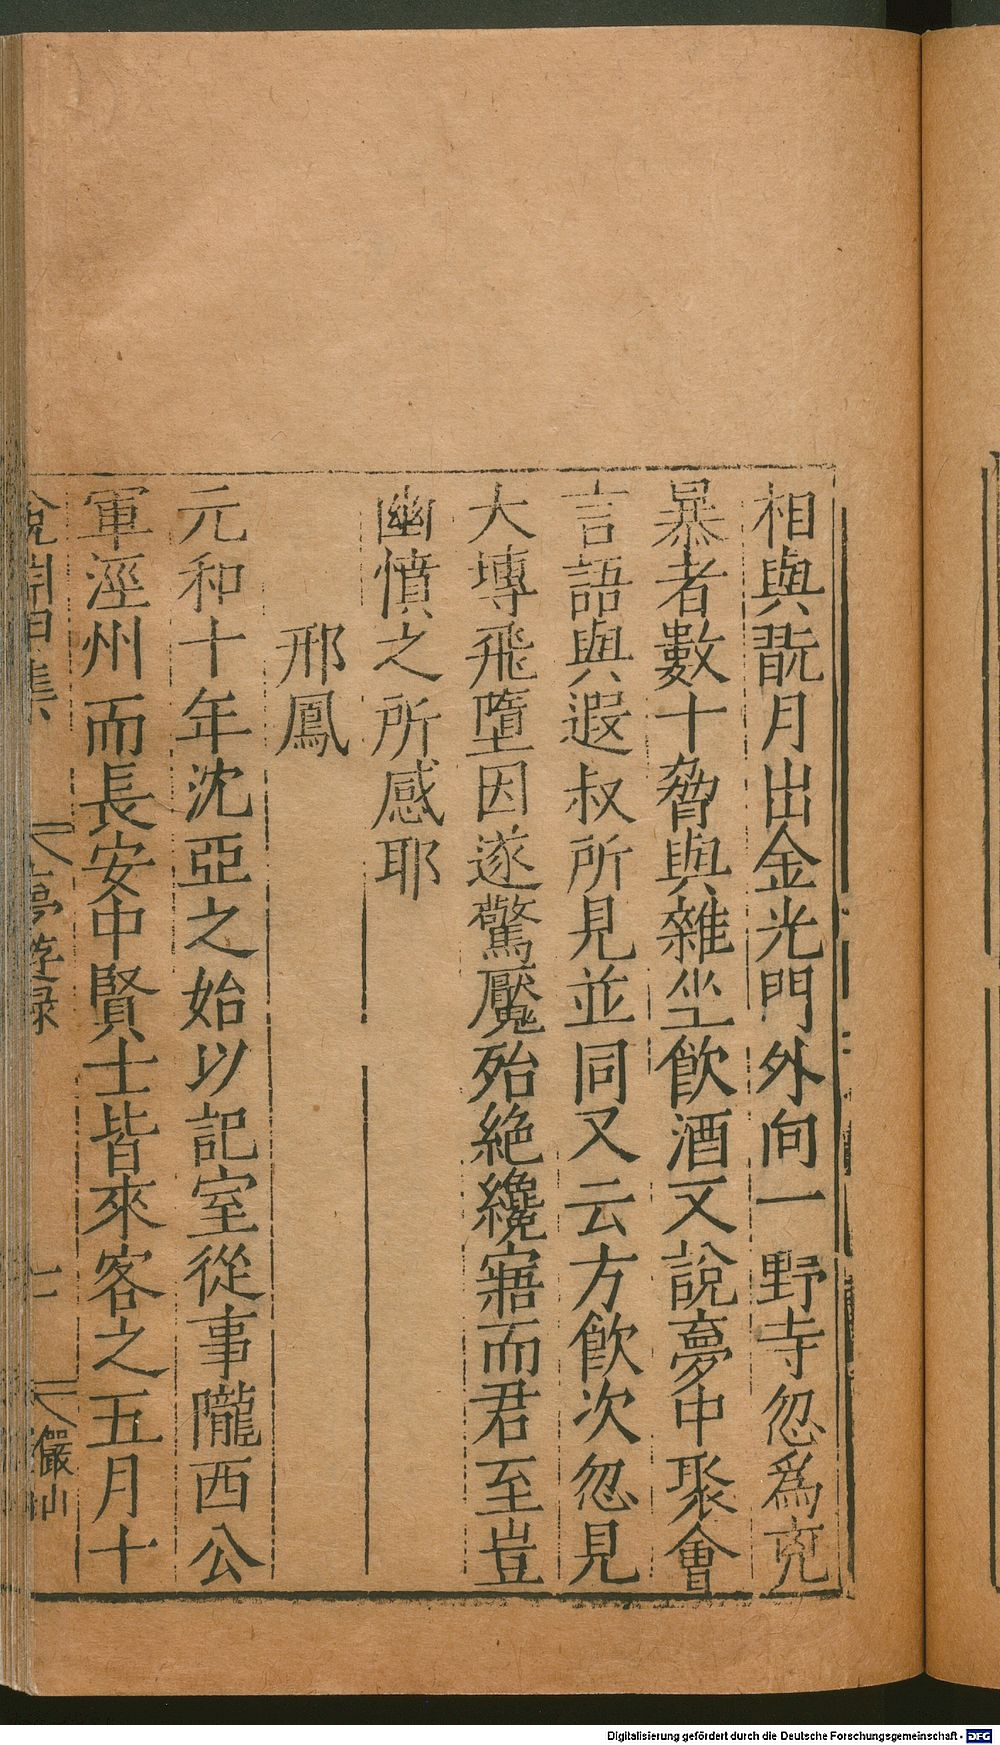 相與翫月出金光門外向一野寺忽爲兇
暴者數十脅與雜坐飮酒又說夢中聚會
言語與遐叔所見並同又云方飮次忽見
大塼飛墮因遂驚魘殆絶纔寤而君至豈
幽憤之所感耶
邢鳳
元和十年沈亞之始以記室從事隴西公
軍涇州而長安中賢士皆來客之五月十
夢遊録
七
儼山
Digitalisierung gefördert durch die Deutsche Forschungsgemeinschaft - DFG